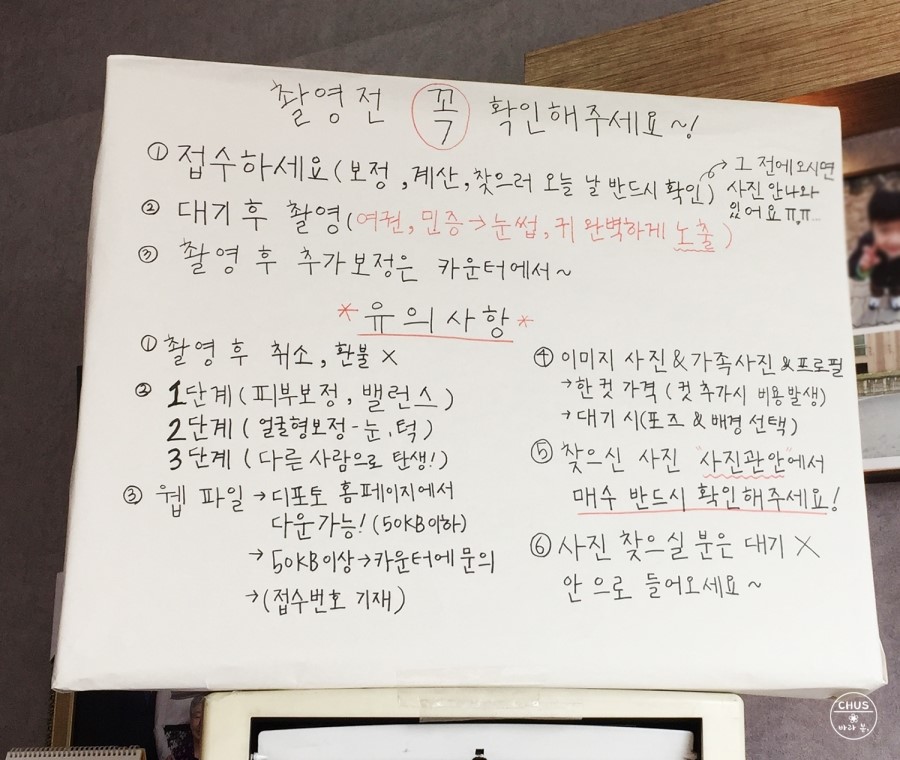 촬영전 꼭 확인해주세요~!
① 접수하세요(보정, 계산, 찾으러 오늘 날 반드시 확인)
→ 그 전에 오시면
사진 안나와
있어요ㅠ,ㅠ...
② 대기 후 촬영(여권, 민증→눈썹, 귀 완벽하게 노출)
③ 촬영 후 추가보정은 카운터에서~
*유의사항*
① 촬영 후 취소, 환불 X
② 1단계(피부보정, 밸런스)
2단계(얼굴형보정-눈, 턱)
3단계(다른 사람으로 탄생!)
③ 웹 파일→디포토 홈페이지에서
다운가능!(50KB이하)
→50KB이상→카운터에 문의
→(접수번호 기재)
④ 이미지 사진&가족사진&프로필
→한 컷 가격(컷 추가시 비용발생)
→대기 시(포즈 & 배경 선택)
⑤ 찾으신 사진 "사진관안"에서
매수 반드시 확인해주세요!
⑥ 사진 찾으실 분은 대기 X
안으로 들어오세요~
CHUS
바라 봄,